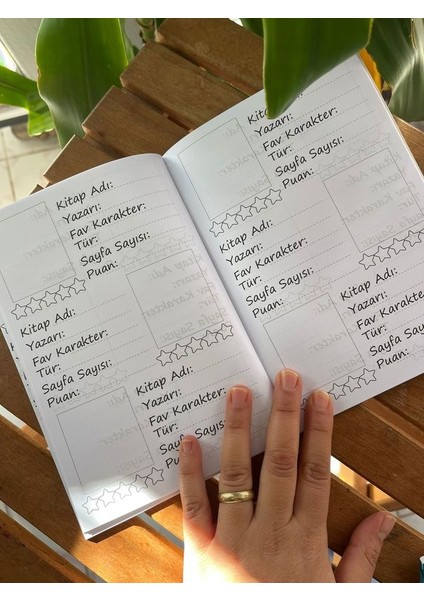 Kitap Adı:
Yazarı:
Fav Karakter:
Tür:
Sayfa Sayısı:
Puan:
Kitap Adı:
Yazarı:
Fav Karakter:
Tür:
Sayfa Sayısı:
Puan:
Kitap Adı:
Yazarı:
Fav Karakter:
Tür:
Sayfa Sayısı:
Puan:
Kitap Adı:
Yazarı:
Fav Karakter:
Tür:
Sayfa Sayısı:
Puan:
Kitap Adı:
Yazarı:
Fav Karakter:
Tür:
Sayfa Sayısı:
Puan:
Kitap Adı:
Yazarı:
Fav Karakter:
Tür:
Sayfa Sayısı:
Puan: